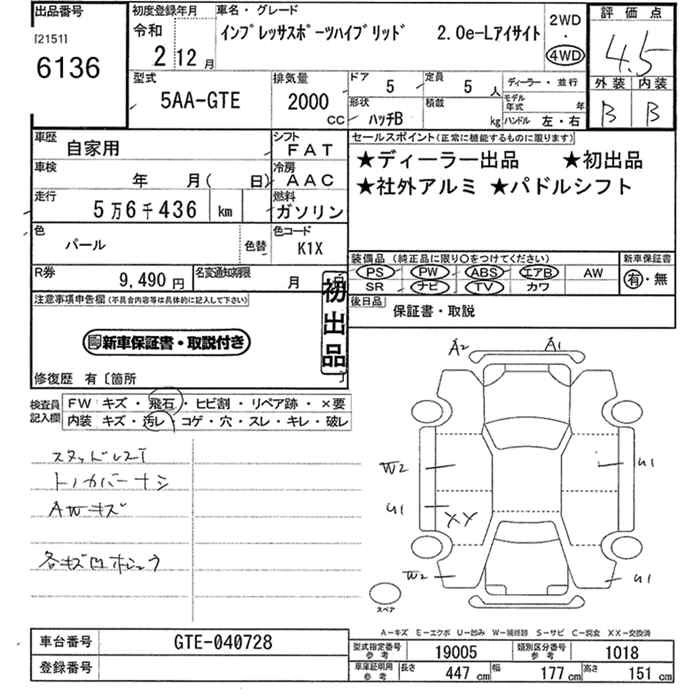 出品番号
[2151]
6136
初度登録年月
令和
2 12月
車名・グレード
インプレッサスポーツハイブリッド 2.0e-Lアイサイト
2WD
・
4WD
評価点
4.5
外装 内装
B B
型式
5AA-GTE
排気量
2000
CC
ドア
5
定員
5 人
形状
ハッチB
積載
kg
ディーラー・並行
モデル年式 年
ハンドル 左・右
車歴
自家用
シフト
FAT
車検
年 月( 日)
冷房
AAC
走行
5万6千436 km
燃料
ガソリン
色
パール
色替
色コード
K1X
R券
9,490円
名変通知期限
月 日
セールスポイント(正常に機能するものに限ります)
★ディーラー出品 ★初出品
★社外アルミ ★パドルシフト
装備品(純正品に限り○をつけてください)
PS PW ABS エアB AW
SR ナビ TV カワ
新車保証書
有・無
後日品
保証書・取説
注意事項申告欄(不具合内容等は具体的に記入して下さい)
新車保証書・取説付き
初出品
修復歴 有〔箇所 〕
検査員記入欄
FW キズ・飛石・ヒビ割・リペア跡・×要
内装 キズ・汚レ・コゲ・穴・スレ・キレ・破レ
スタッドレスT
トノカバーナシ
AWキズ
A2 A1
W2 U1
U1 XX
W2 U1
スペア
A-キズ E-エクボ U-凹み W-補修跡 S-サビ C-腐食 XX-交換済
車台番号
GTE-040728
登録番号
型式指定番号 参考
19005
類別区分番号 参考
1018
車庫証明用 参考
長さ 447 cm 幅 177 cm 高さ 151 cm